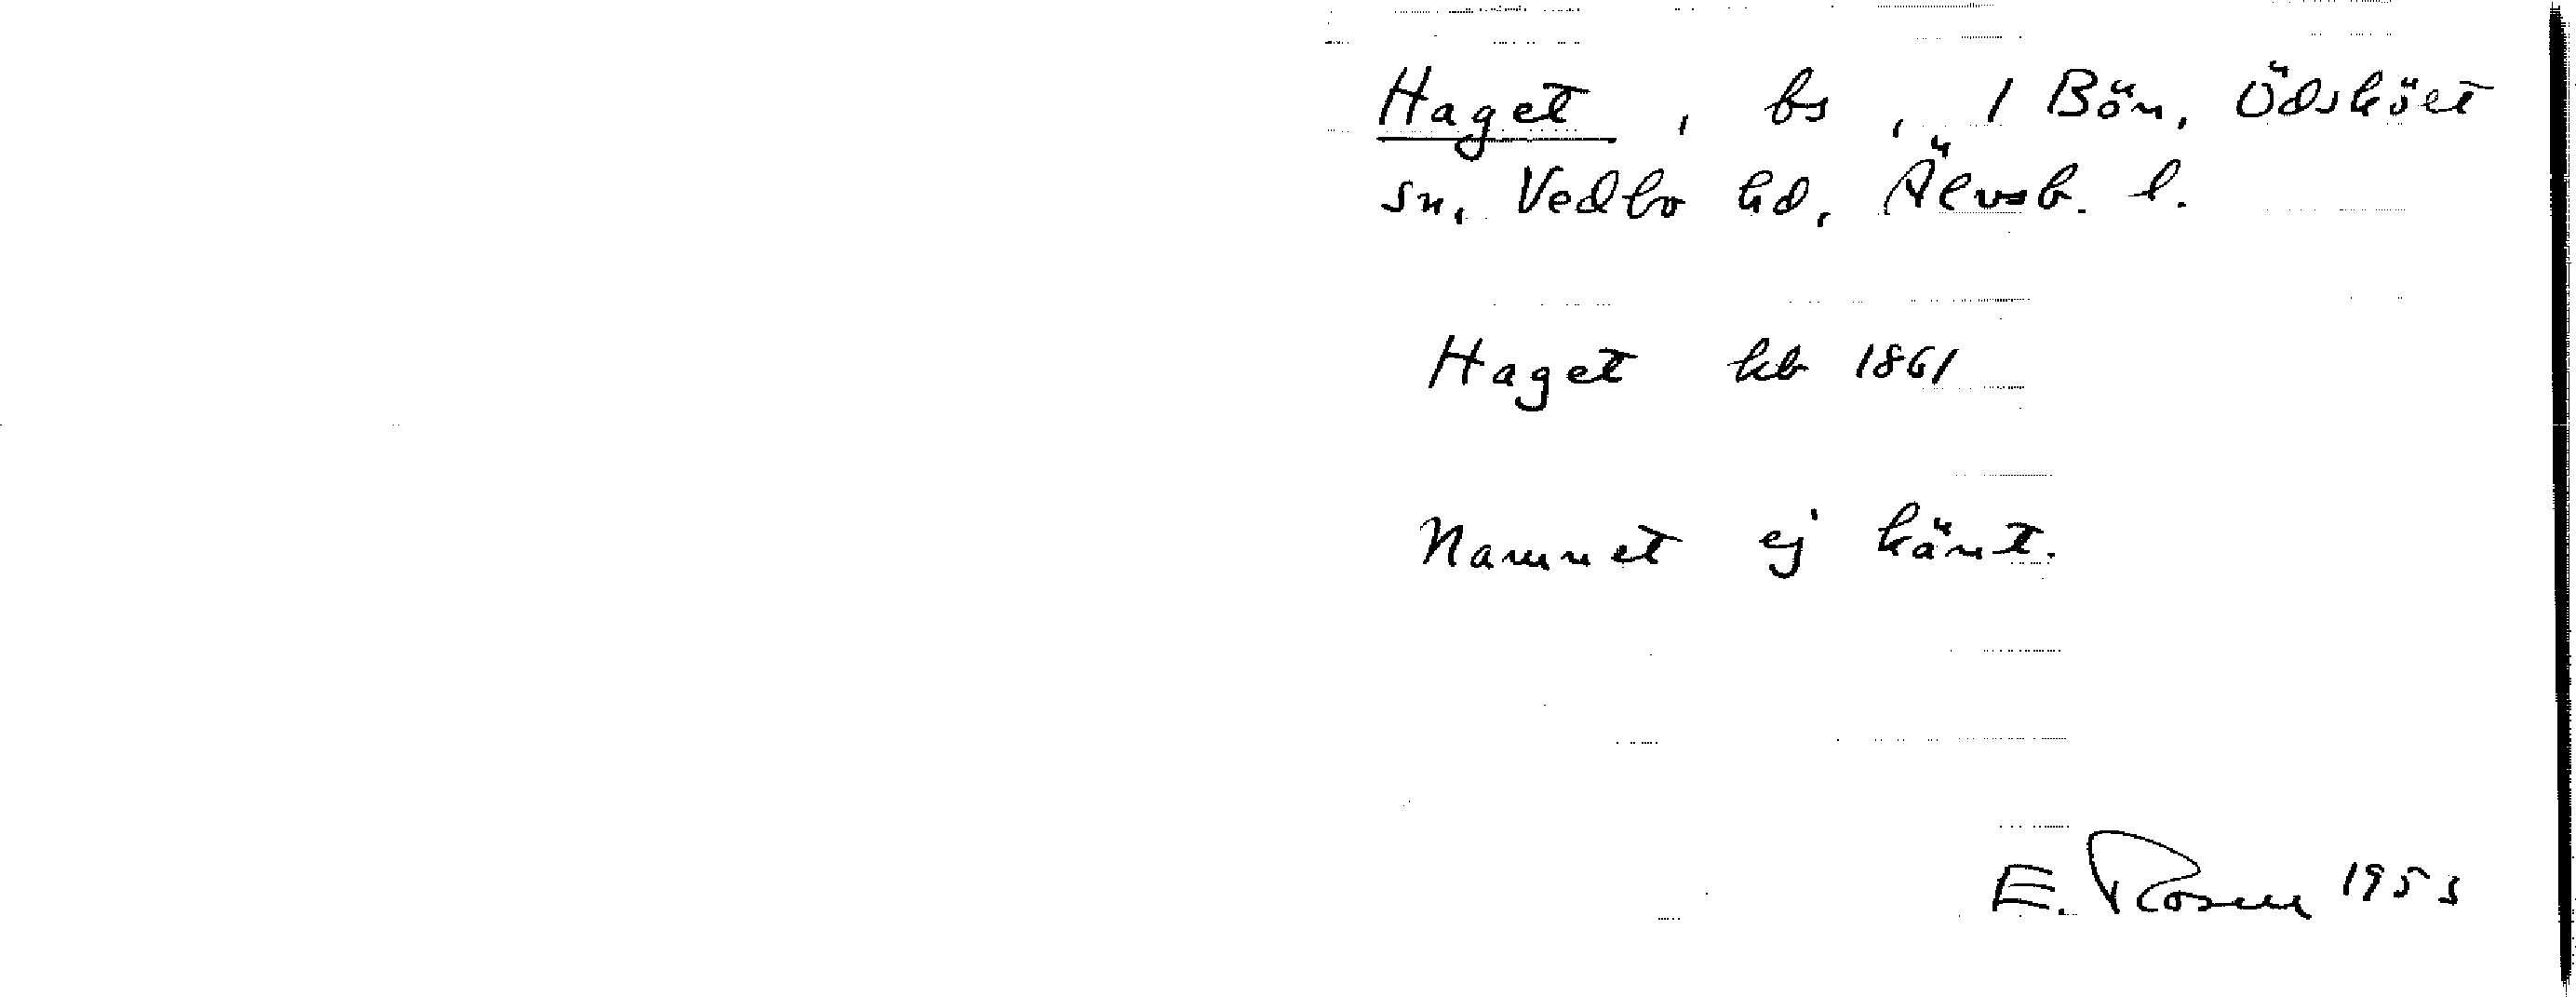 Haget, bs, 1 Bön, Ödsköet
sn, Vedbo hd, Älvsb. l.
Haget kb 1861
Namnet ej känt.
E. Rosen 1953